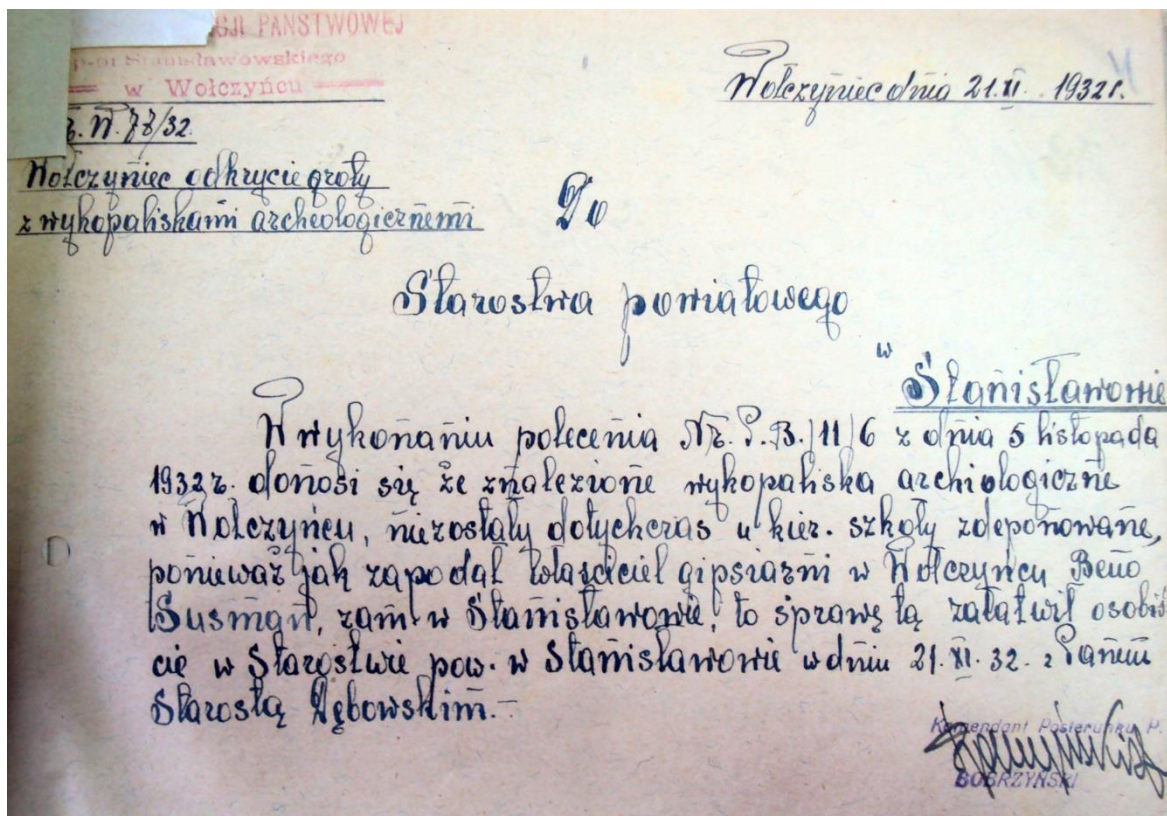 CJI PAŃSTWOWEJ
p-ol Stanisławowskiego
w Wołczyńcu
Wołczyniec dnia 21.XI. 1932r.
L. W. 77/32.
Wołczyniec odkrycie groty
z wykopaliskami archeologicznemi
Do
Starostwa powiatowego
w Stanisławowie
W wykonaniu polecenia Nr. P.B./11/6 z dnia 5 listopada
1932 r. donosi się że znalezione wykopaliska archiologiczne
w Wołczyńcu, niezostały dotychczas u kier. szkoły zdeponowane,
ponieważ jak zapodał właściciel gipsiarni w Wołczyńcu Beno
Susman, zam. w Stanisławowie, to sprawę tą załatwił osobiś
cie w Starostwie pow. w Stanisławowie w dniu 21.XI.32. z Panem
Starostą Dębowskim.-
Komendant Posterunku P.
BOBRZYŃSKI